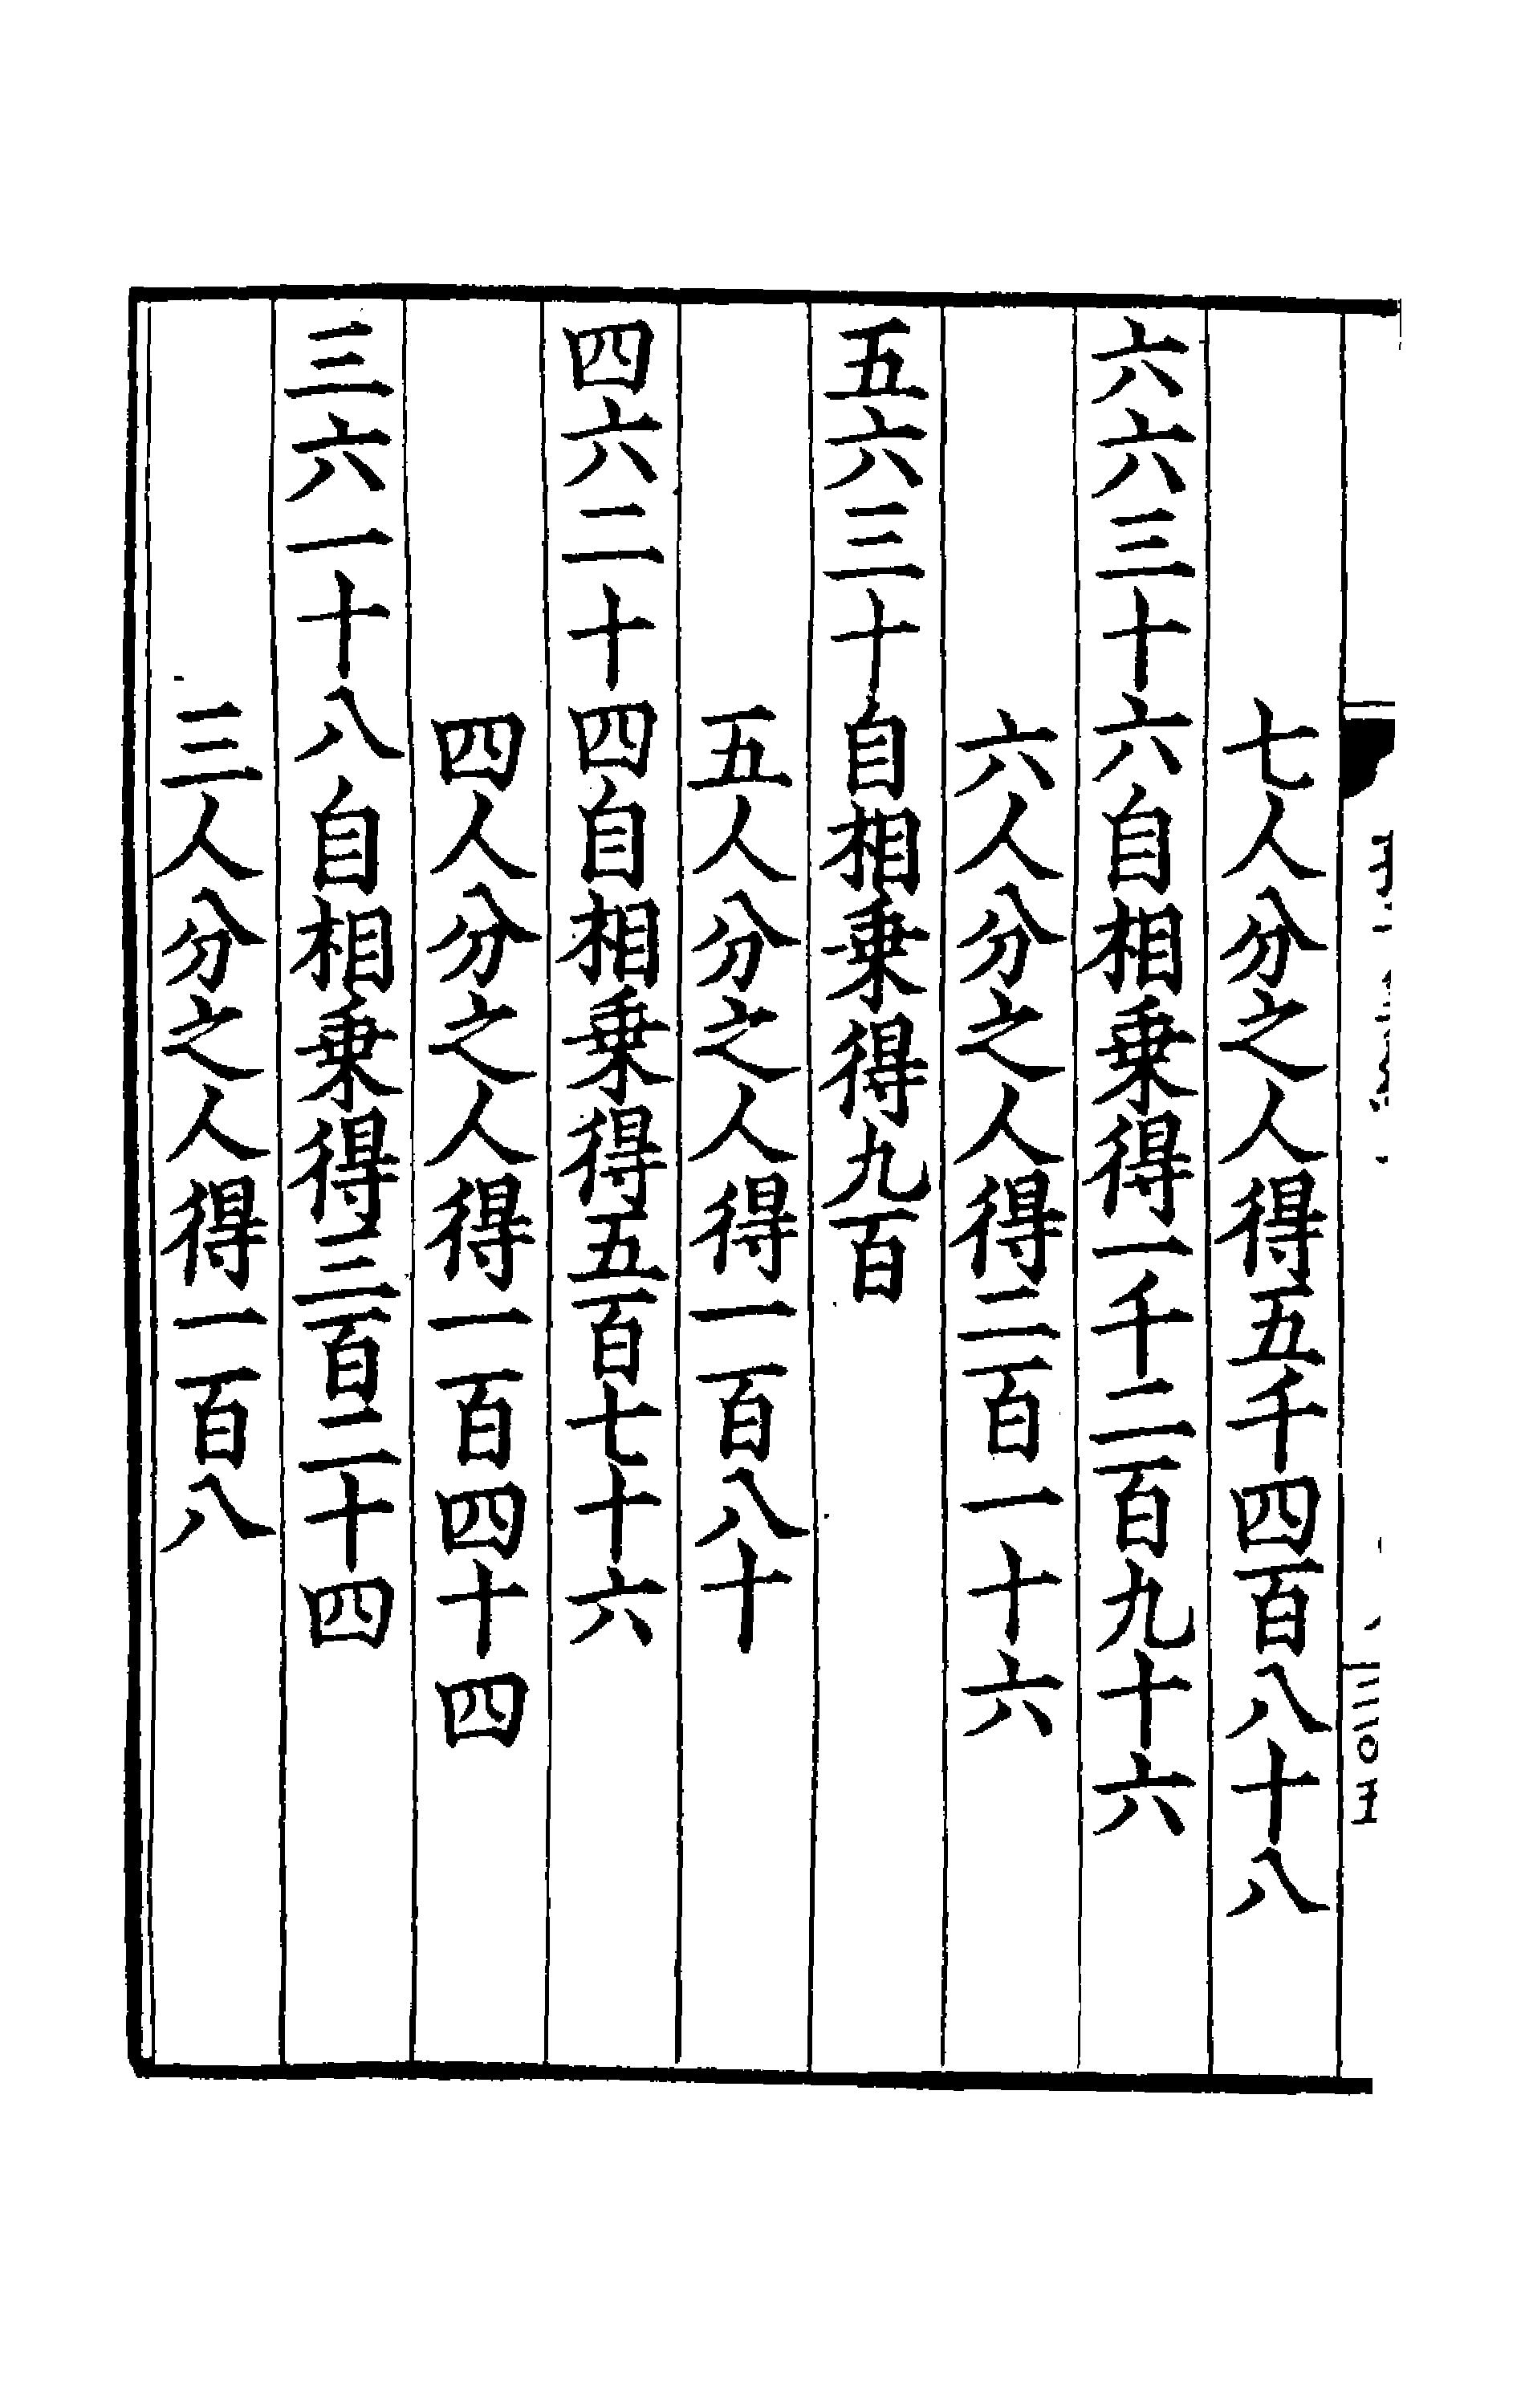 七人分之人得五千四百八十八
六六三十六自相乗得一千二百九十六
六人分之人得二百一十六
五六三十自相乗得九百
五人分之人得一百八十
四六二十四自相乗得五百七十六
四人分之人得一百四十四
三六一十八自相乗得三百二十四
三人分之人得一百八